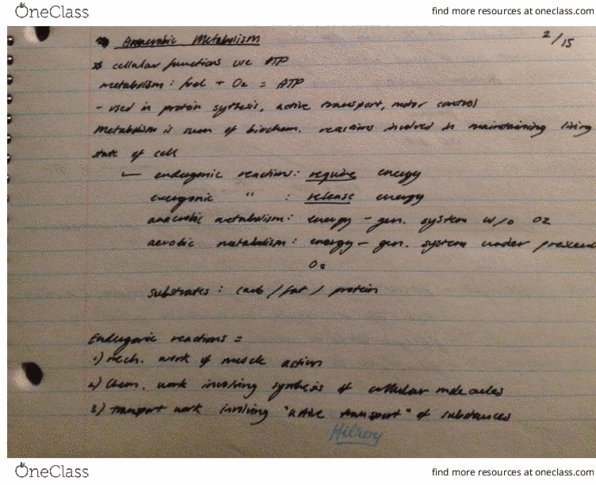 OneClass find more resources at oneclass.com
Anaerobic Metabolism 2/15
cellular functions use ATP
metabolism : fuel + O2 = ATP
- used in protein sythesis, active transport, motor control
Metabolism is sum of biochem. reactions involved in maintaining living
state of cell
endergonic reactions : require energy
exergonic " : release energy
anaerobic metabolism : energy - gen. system w/o O2
aerobic metabolism : energy - gen. system under presence
O2
substrates : carb / fat / protein
Endergonic reactions =
1) mech. work of muscle action
2) Chem. work involving synthesis of cellular molecules
3) transport work involving "active transport" of substances
Hilroy
OneClass find more resources at oneclass.com